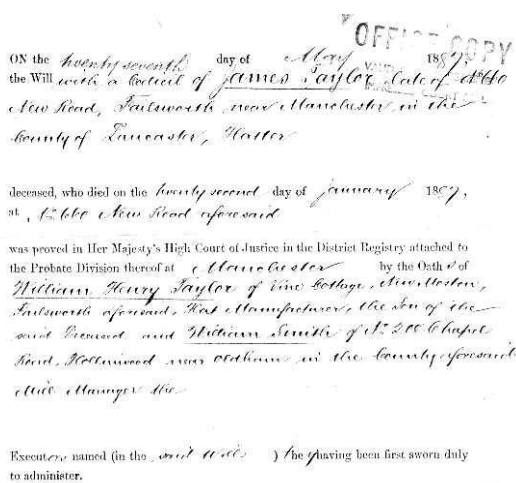 OFFICE COPY
ON the twenty seventh day of May 1887,
the Will with a Codicil of James Taylor late of No
New Road, Failsworth near Manchester in the
County of Lancaster, Hatter
deceased, who died on the twenty second day of January 1887,
at New Road aforesaid
was proved in Her Majesty's High Court of Justice in the District Registry attached to
the Probate Division thereof at Manchester by the Oaths of
William Henry Taylor of Vine Cottage, New Moston,
Failsworth aforesaid, Hat Manufacturer, the Son of the
said Deceased and William Smith of No 200 Chapel
Road, Hollinwood near Oldham in the County aforesaid
Mill Manager the
Executors named (in the said Will ) they having been first sworn duly
to administer.